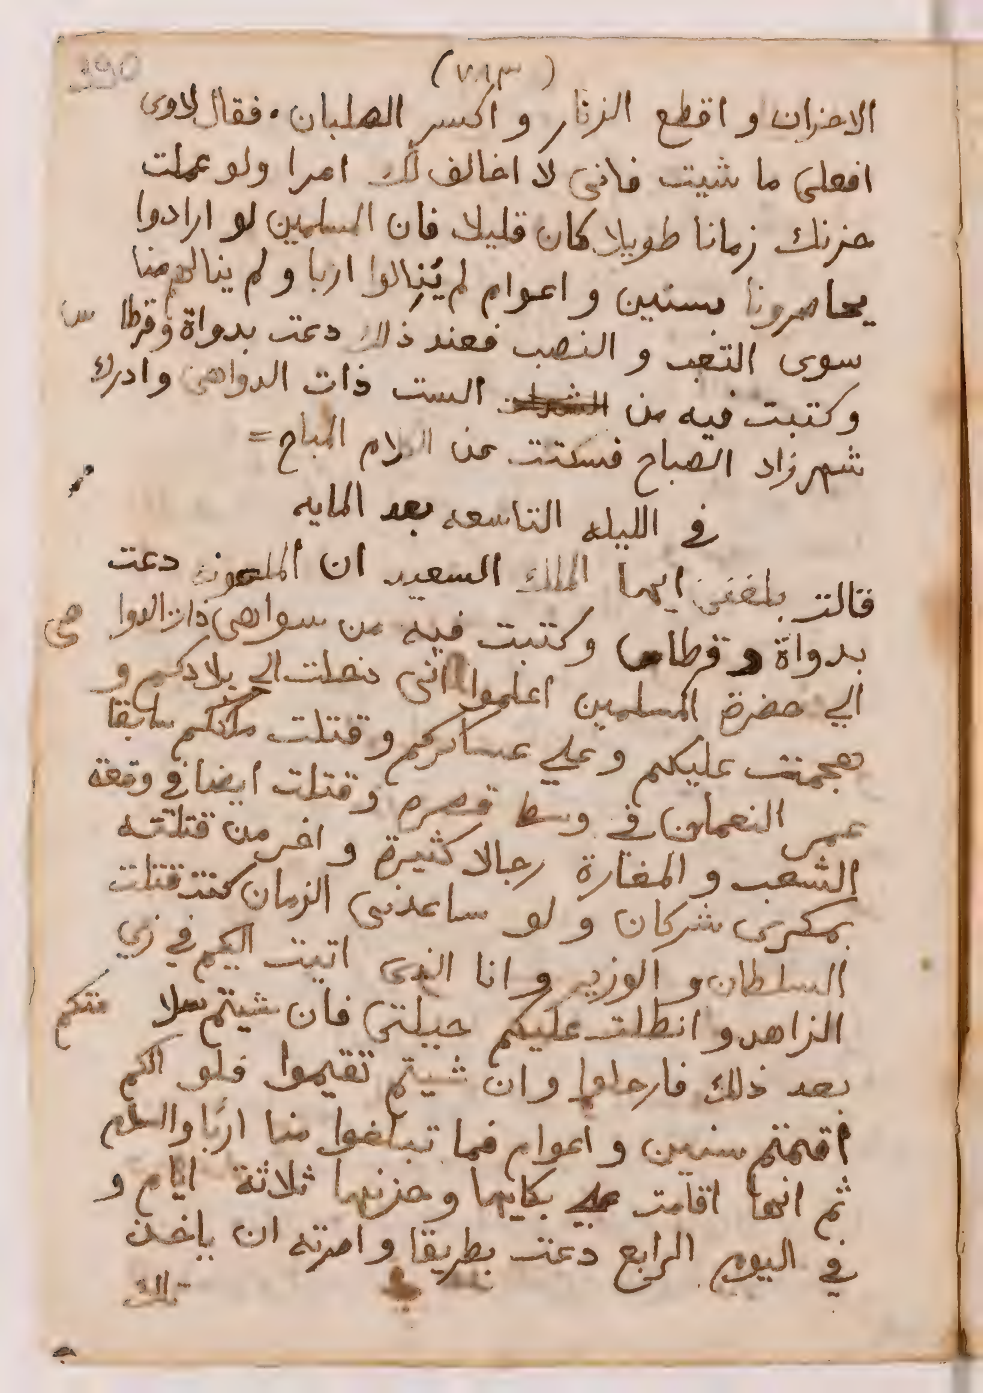 390
(٧٨٣)
الاحزان و اقطع الزنار و اكسر الصلبان. فقال لاوى
افعلى ما شيت فانى لا اخالف لك امرا ولو عملت
حزنك زمانا طويلا كان قليلا فان المسلمين لو ارادوا
يحاصرونا بسنين و اعوام لم ينالوا اربا و لم ينالهم منا
سوى التعب و النصب فعند ذلك دعت بدواة وقرطاس
وكتبت فيه من الست ذات الدواهى وادرك
شهرزاد الصباح فسكتت عن الكلام المباح =
في الليله التاسعه بعد المايه
قالت بلغنى ايها الملك السعيد ان الملعونه دعت
بدواة وقرطاس وكتبت فيه من سواهى ذات الدواهى
الي حضرة المسلمين اعلموا اننى دخلت الي بلادكم و
هجمت عليكم وعلي عساكركم وقتلت ملككم سابقا
عمر النعمان في وسط قصره وقتلت ايضا في وقعة
الشعب و المغارة رجالا كثيرة و اخر من قتلته
بمكرى شركان و لو ساعدنى الزمان كنت قتلت
السلطان و الوزير و انا الذى اتيت اليكم في زي
الزاهد و انطلت عليكم حيلتى فان شيتم سلامتكم
بعد ذلك فارحلوا وان شيتم تقيموا فلو انكم
اقمتم سنين و اعوام فما تبلغوا منا اربا والسلام
ثم انها اقامت علي بكايها و حزنها ثلاثة ايام و
في اليوم الرابع دعت بطريقا و امرته ان ياخذ
تلك